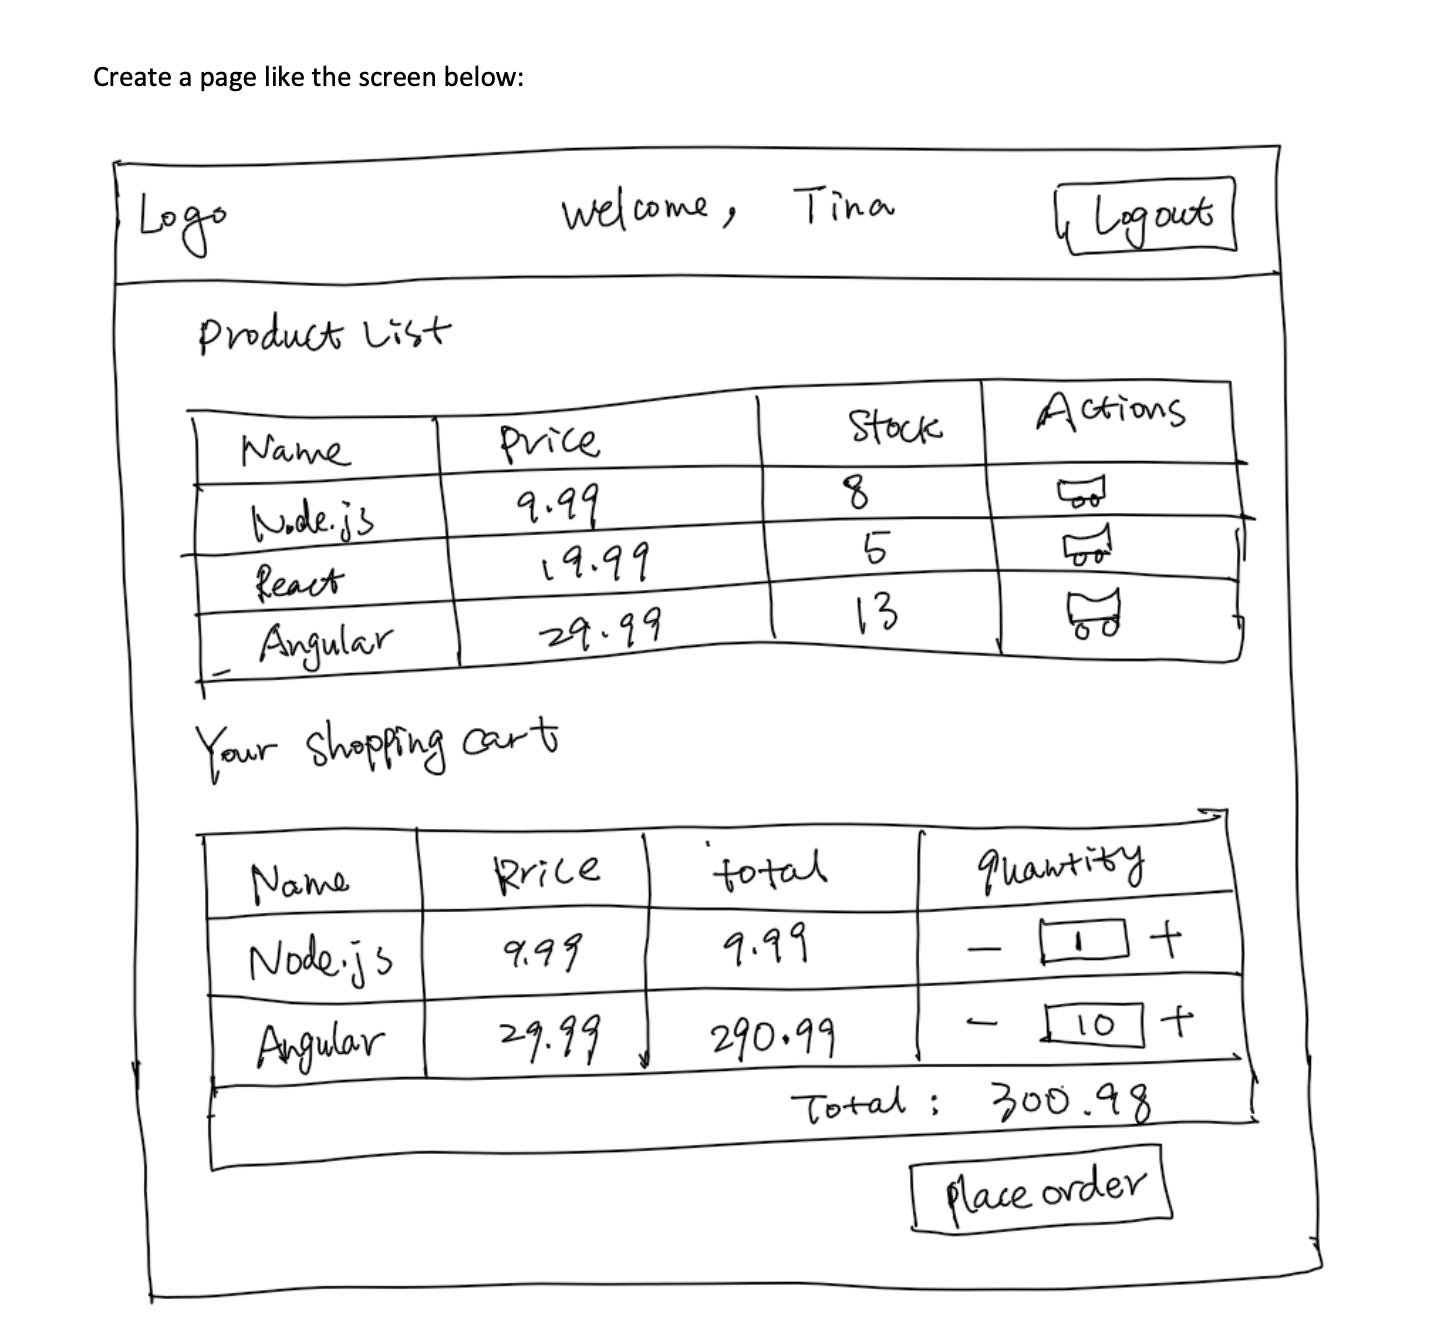 Create a page like the screen below:
Logo welcome, Tina Logout
Product List
Name Price Stock Actions
Node.js 9.99 8
React 19.99 5
Angular 29.99 13
Your shopping cart
Name Price total quantity
Node.js 9.99 9.99 - 1 +
Angular 29.99 290.99 - 10 +
Total: 300.98
place order